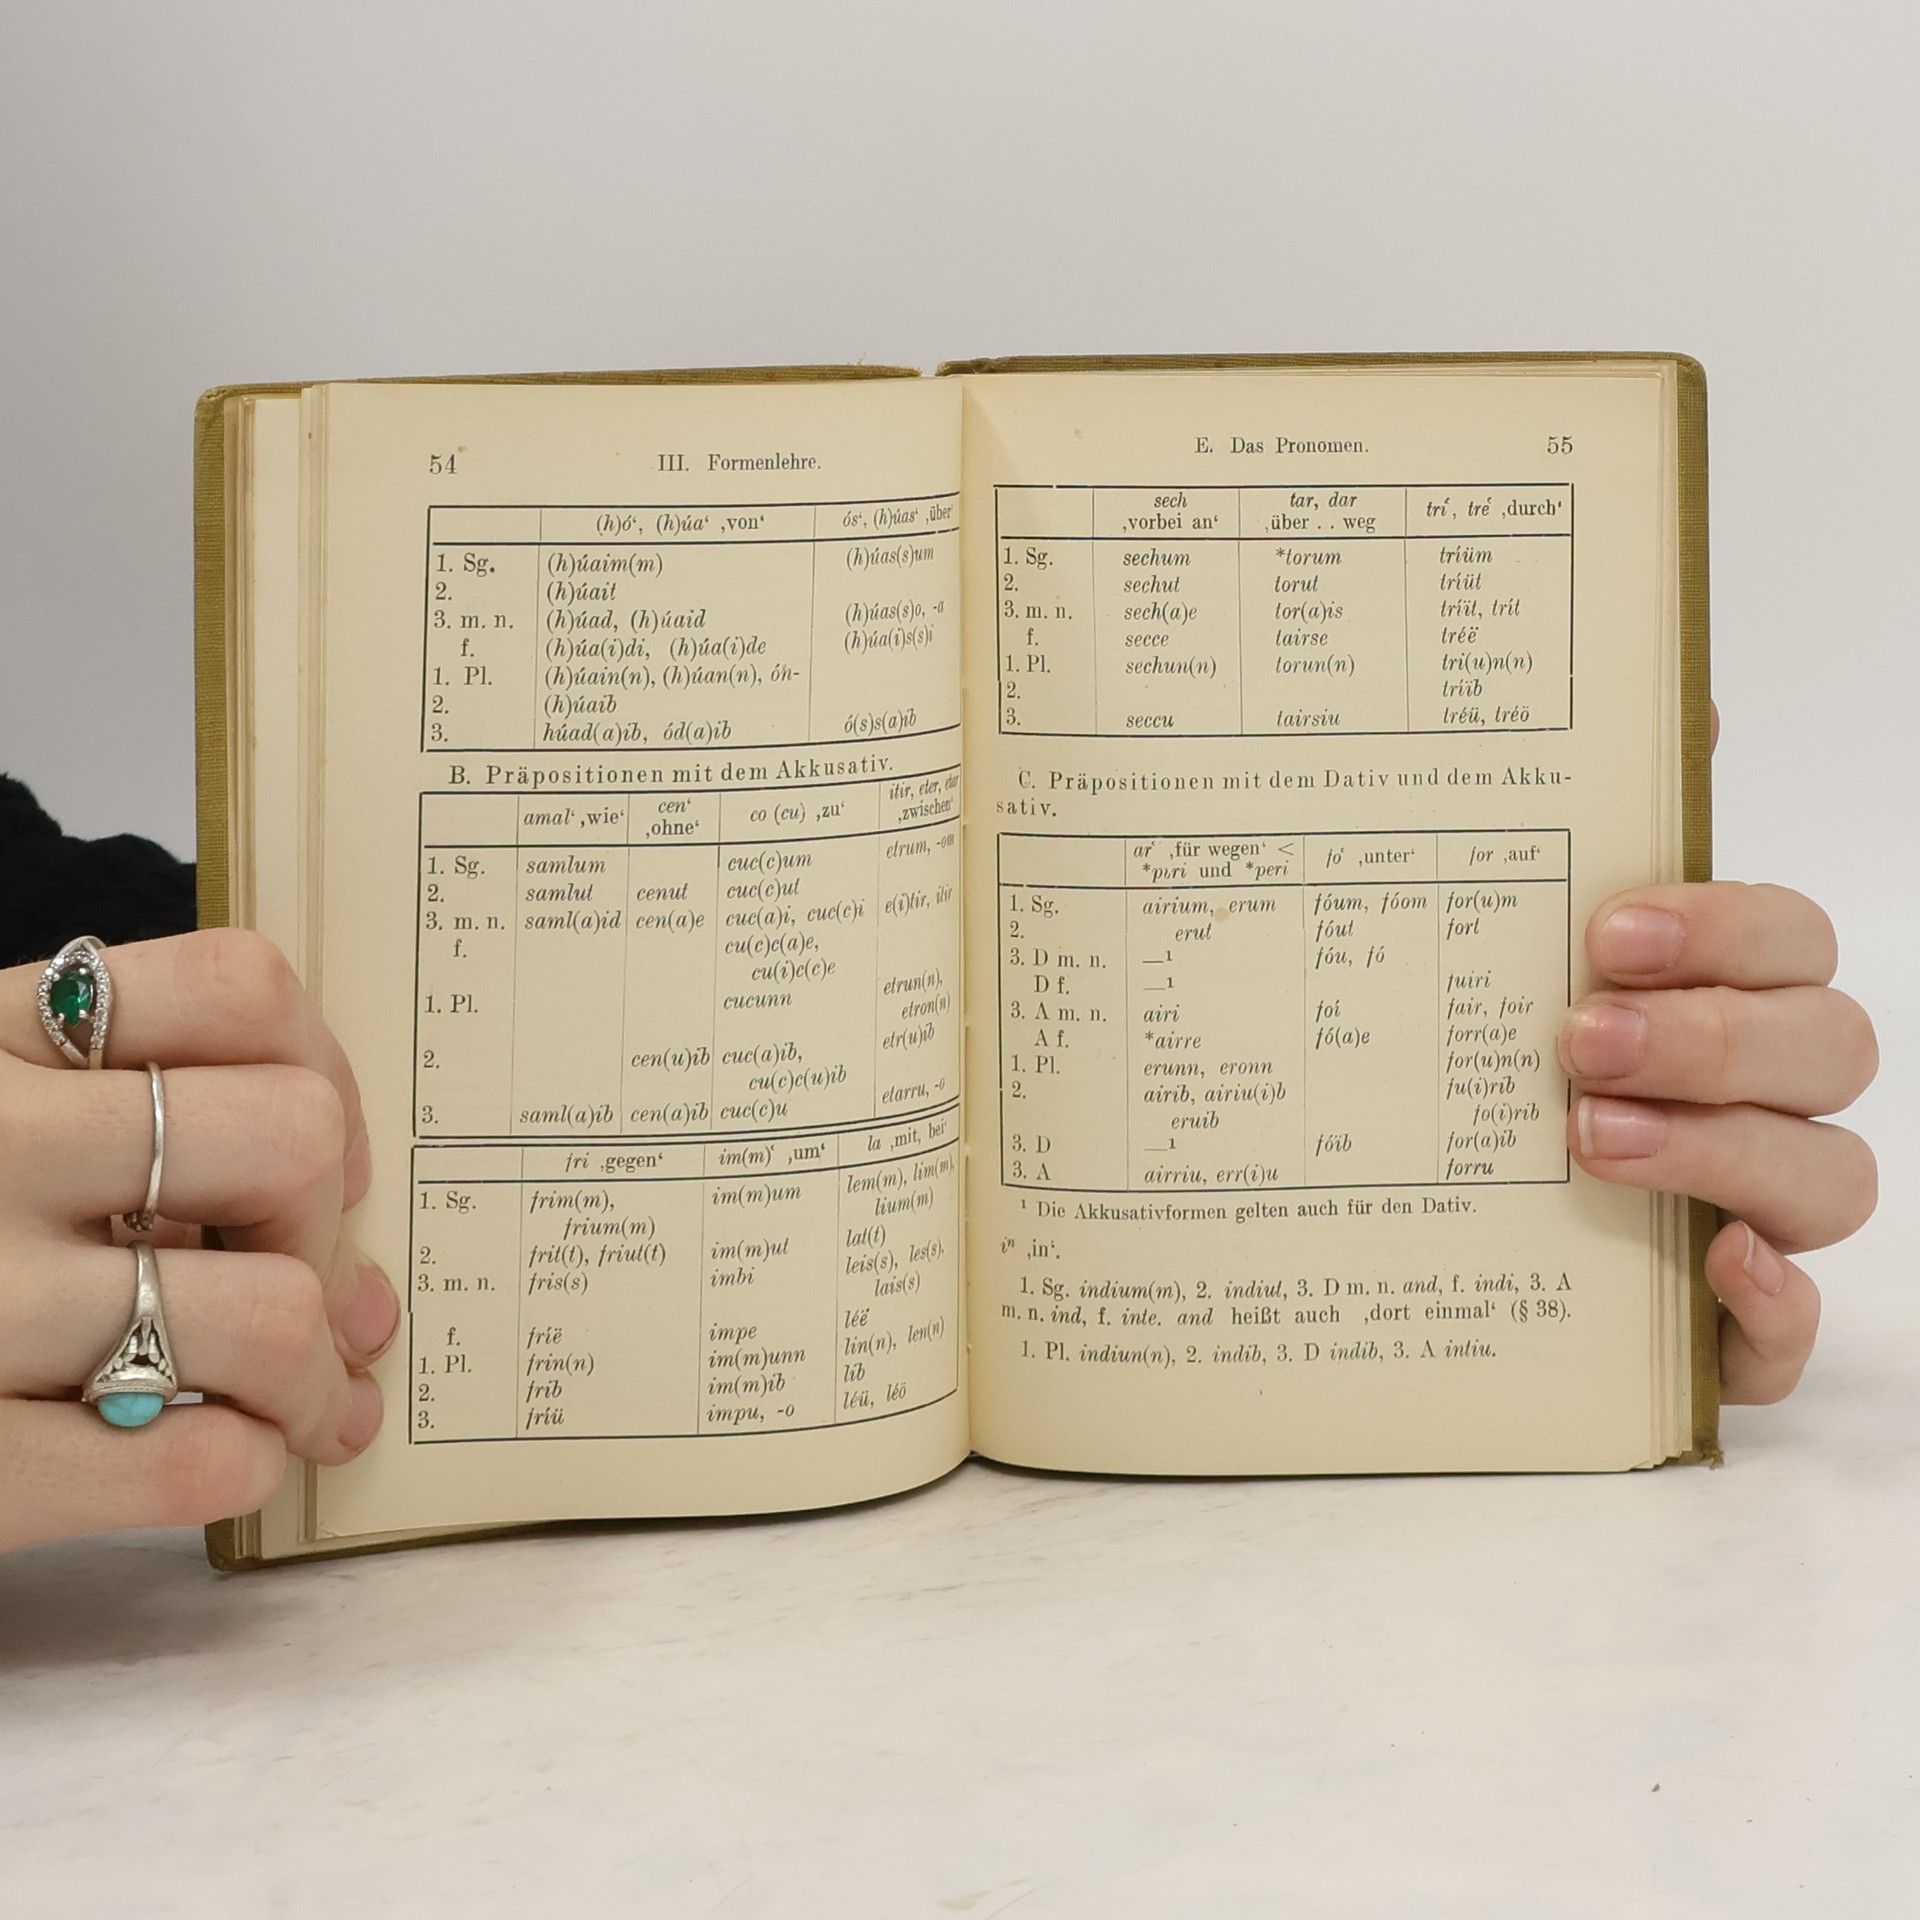 54 III. Formenlehre.
(h)ó‘, (h)úa‘ ‚von‘ ós‘, (h)úas‘ ‚über‘
1. Sg. (h)úaim(m) (h)úas(s)um
2. (h)úait
3. m. n. (h)úad, (h)úaid (h)úas(s)o, -a
f. (h)úa(i)di, (h)úa(i)de (h)úa(i)s(s)i
1. Pl. (h)úain(n), (h)úan(n), ón-
2. (h)úaib
3. húad(a)ib, ód(a)ib ó(s)s(a)ib
B. Präpositionen mit dem Akkusativ.
amal‘ ‚wie‘ cen‘ ‚ohne‘ co (cu) ‚zu‘ itir, eter, ‚zwischen‘
1. Sg. samlum cuc(c)um etrum, -om
2. samlut cenut cuc(c)ut
3. m. n. saml(a)id cen(a)e cuc(a)i, cuc(c)i e(i)tir, itir
f. cu(c)c(a)e,
cu(i)c(c)e
1. Pl. cucunn etrun(n),
etron(n)
2. cen(u)ib cuc(a)ib, etr(u)ib
cu(c)c(u)ib
3. saml(a)ib cen(a)ib cuc(c)u etarru, -o
fri ‚gegen‘ im(m)‘ ‚um‘ la ‚mit, bei‘
1. Sg. frim(m), im(m)um lem(m), lim(m),
frium(m) lium(m)
2. frit(t), friut(t) im(m)ut lat(t)
3. m. n. fris(s) imbi leis(s), les(s),
lais(s)
f. frië impe léë
1. Pl. frin(n) im(m)unn lin(n), len(n)
2. frib im(m)ib lib
3. fríü impu, -o léü, léö
E. Das Pronomen. 55
sech tar, dar trí‘, tré‘ ‚durch‘
‚vorbei an‘ ‚über . . weg
1. Sg. sechum *torum tríüm
2. sechut torut tríüt
3. m. n. sech(a)e tor(a)is tríït, trít
f. secce tairse tréë
1. Pl. sechun(n) torun(n) tri(u)n(n)
2. tríïb
3. seccu tairsiu tréü, tréö
C. Präpositionen mit dem Dativ und dem Akku-
sativ.
ar‘ ‚für wegen‘ < fo‘ ‚unter‘ for ‚auf‘
*pₑri und *peri
1. Sg. airium, erum fóum, fóom for(u)m
2. erut fóut fort
3. D m. n. —¹ fóu, fó
D f. —¹ fuiri
3. A m. n. airi foí fair, foir
A f. *airre fó(a)e forr(a)e
1. Pl. erunn, eronn for(u)n(n)
2. airib, airiu(i)b fu(i)rib
eruib fo(i)rib
3. D —¹ fóïb for(a)ib
3. A airriu, err(i)u forru
¹ Die Akkusativformen gelten auch für den Dativ.
iⁿ ‚in‘.
1. Sg. indium(m), 2. indiut, 3. D m. n. and, f. indi, 3. A
m. n. ind, f. inte. and heißt auch ‚dort einmal‘ (§ 38).
1. Pl. indiun(n), 2. indib, 3. D indib, 3. A intiu.